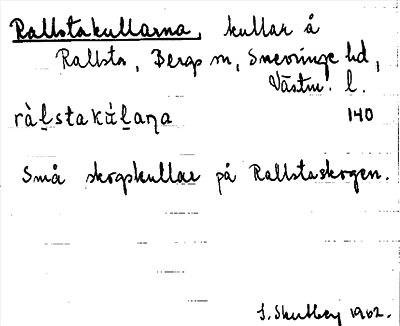 Rallstakullarna, kullar å
Rallsta, Bergs sn, Snevringe hd,
Västm. l.
ràl̠stakúl̠aɳa 140
Små skogskullar på Rallstaskogen.
1962.